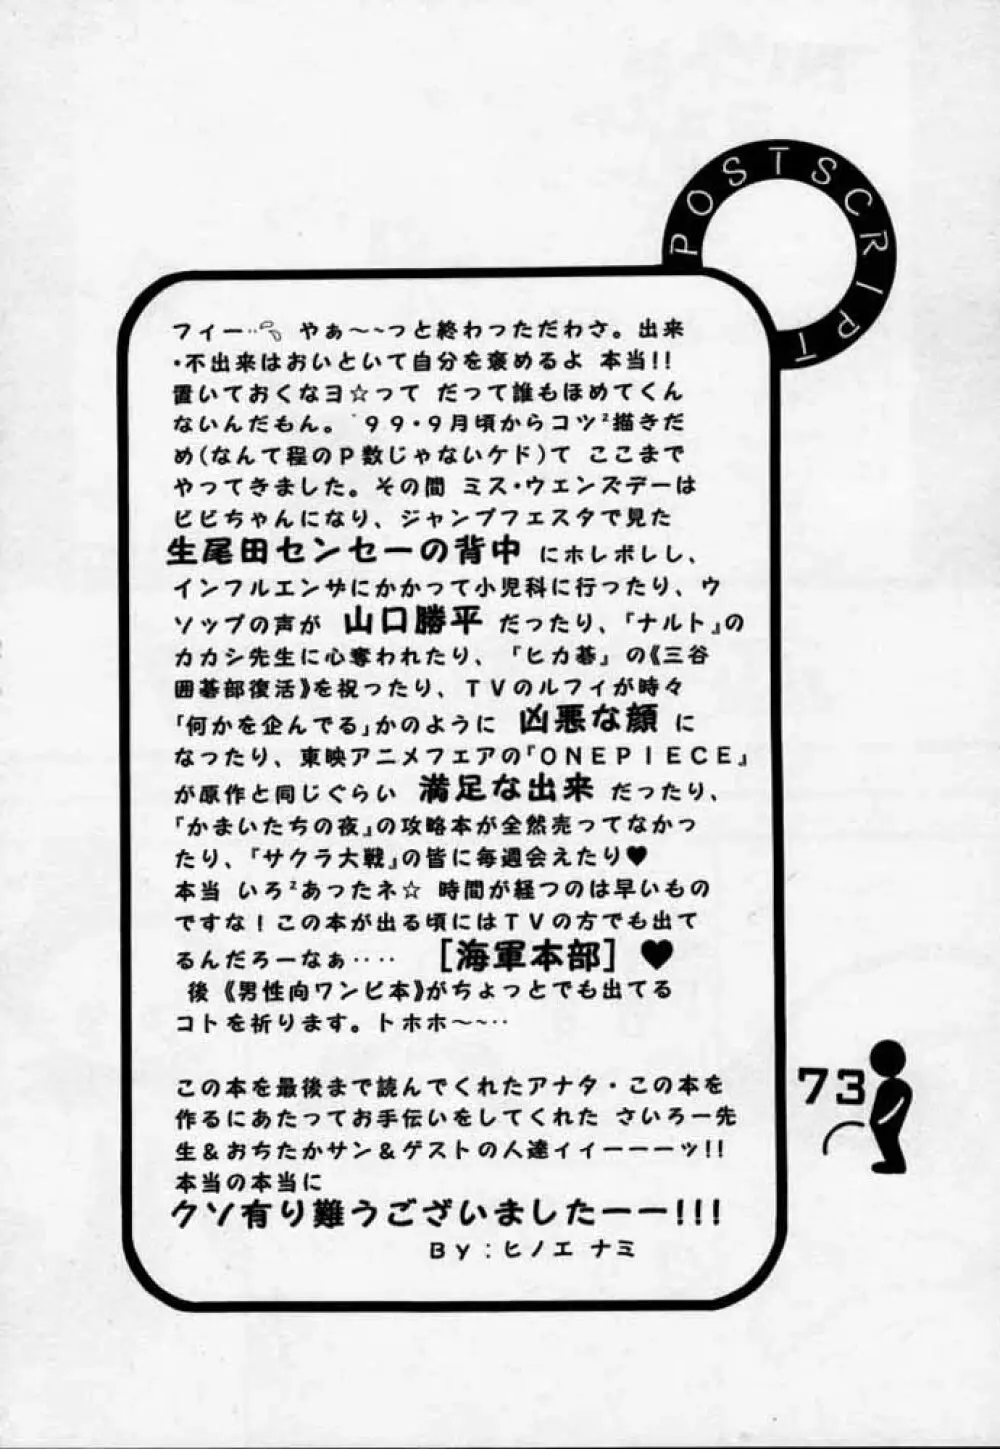 POSTSCRIPT
フィー‥ やぁ～~っと終わっただわさ。出来
・不出来はおいといて自分を褒めるよ 本当!!
置いておくなヨ☆って だって誰もほめてくん
ないんだもん。 '99・9月頃からコツ²描きだ
め(なんて程のP数じゃないケド)て ここまで
やってきました。その間 ミス・ウェンズデーは
ビビちゃんになり、ジャンプフェスタで見た
生尾田センセーの背中 にホレボレし、
インフルエンザにかかって小児科に行ったり、ウ
ソップの声が 山口勝平 だったり、『ナルト』の
カカシ先生に心奪われたり、『ヒカ碁』の《三谷
囲碁部復活》を祝ったり、TVのルフィが時々
「何かを企んでる」かのように 凶悪な顔 に
なったり、東映アニメフェアの『ONEPIECE』
が原作と同じぐらい 満足な出来 だったり、
『かまいたちの夜』の攻略本が全然売ってなかっ
たり、『サクラ大戦』の皆に毎週会えたり♥
本当 いろ²あったネ☆ 時間が経つのは早いもの
ですな！この本が出る頃にはTVの方でも出て
るんだろーなぁ‥‥ [海軍本部]♥
後《男性向ワンピ本》がちょっとでも出てる
コトを祈ります。トホホ～~‥
この本を最後まで読んでくれたアナタ・この本を
作るにあたってお手伝いをしてくれた さいろー先
生＆おちたかサン＆ゲストの人達ィィーーーッ!!
本当の本当に
クソ有り難うございましたーー!!!
By:ヒノエ ナミ
73